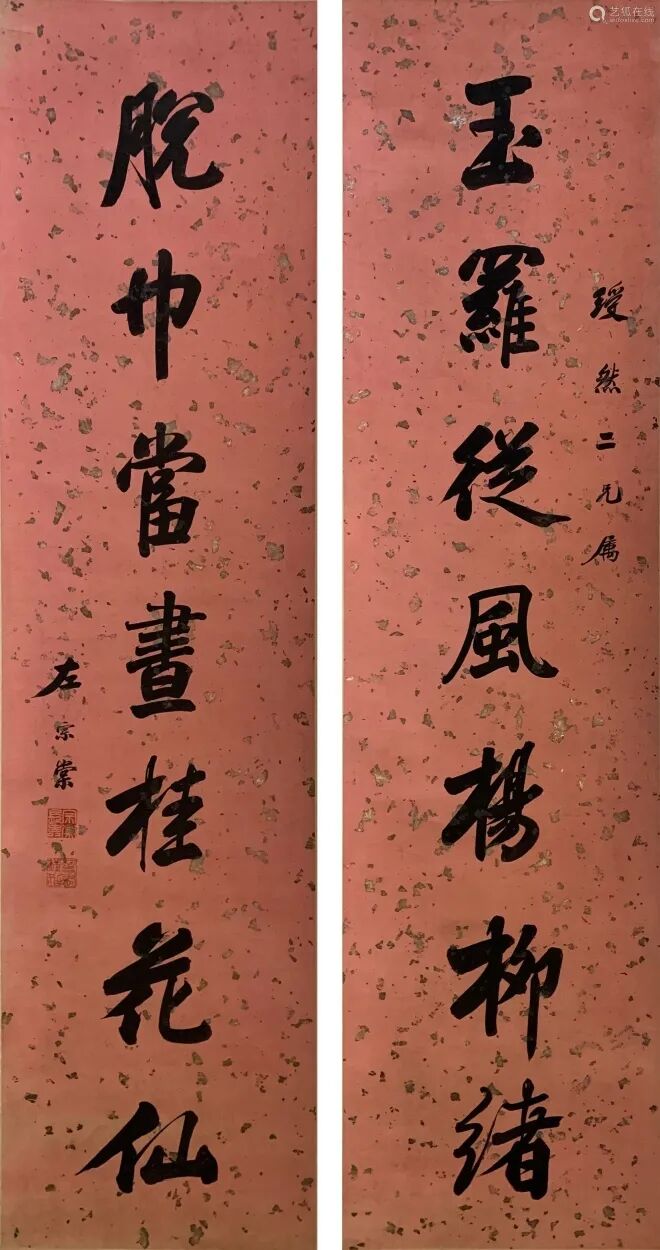 玉羅從風楊柳緒
綬然二兄属
脫巾當晝桂花仙
左宗棠
艺狐在线